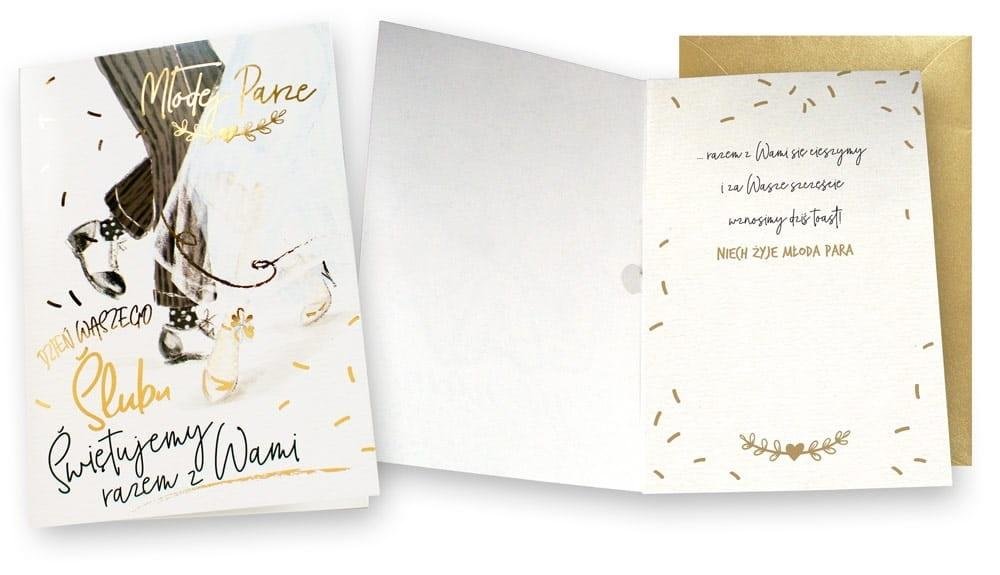 Młodej Parze
DZIEŃ WASZEGO
Ślubu
Świętujemy
razem z Wami
... razem z Wami się cieszymy
i za Wasze szczęście
wznosimy dziś toast!
NIECH ŻYJE MŁODA PARA